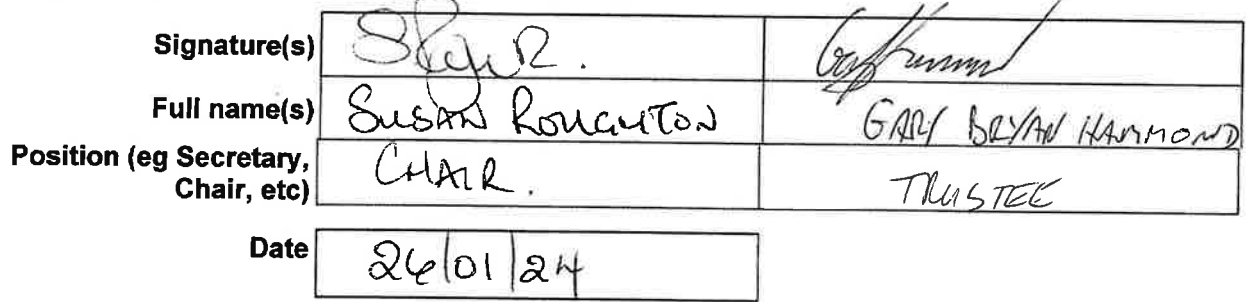 Signature(s)
Full name(s) SUSAN ROUGHTON GARY BRYAN HAMMOND
Position (eg Secretary,
Chair, etc) CHAIR. TRUSTEE
Date 26/01/24